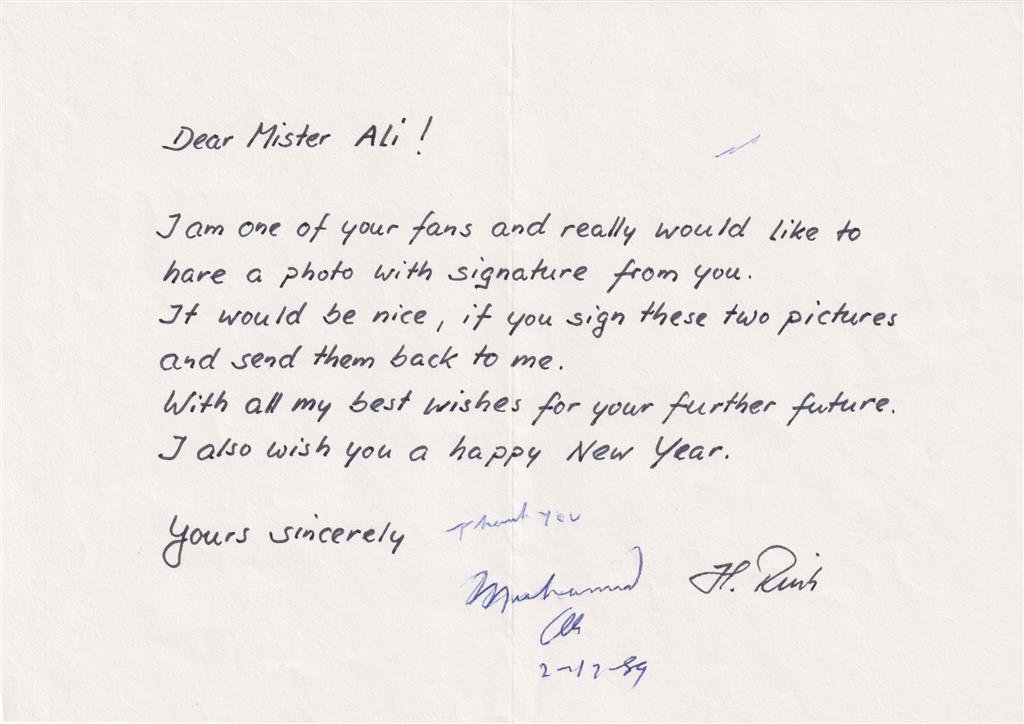 Dear Mister Ali!
I am one of your fans and really would like to
have a photo with signature from you.
It would be nice, if you sign these two pictures
and send them back to me.
With all my best wishes for your further future.
I also wish you a happy New Year.
Yours sincerely
Thank you
Muhammad
Ali
H.